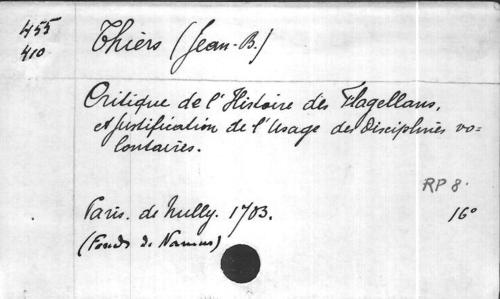 455
410
Thiers (Jean-B.)
Critique de l'Histoire des Flagellans,
et justification de l'Usage des Disciplines vo-
lontaires.
RP 8.
Paris. de Nully. 1703. 16°
(Fonds de Namur)